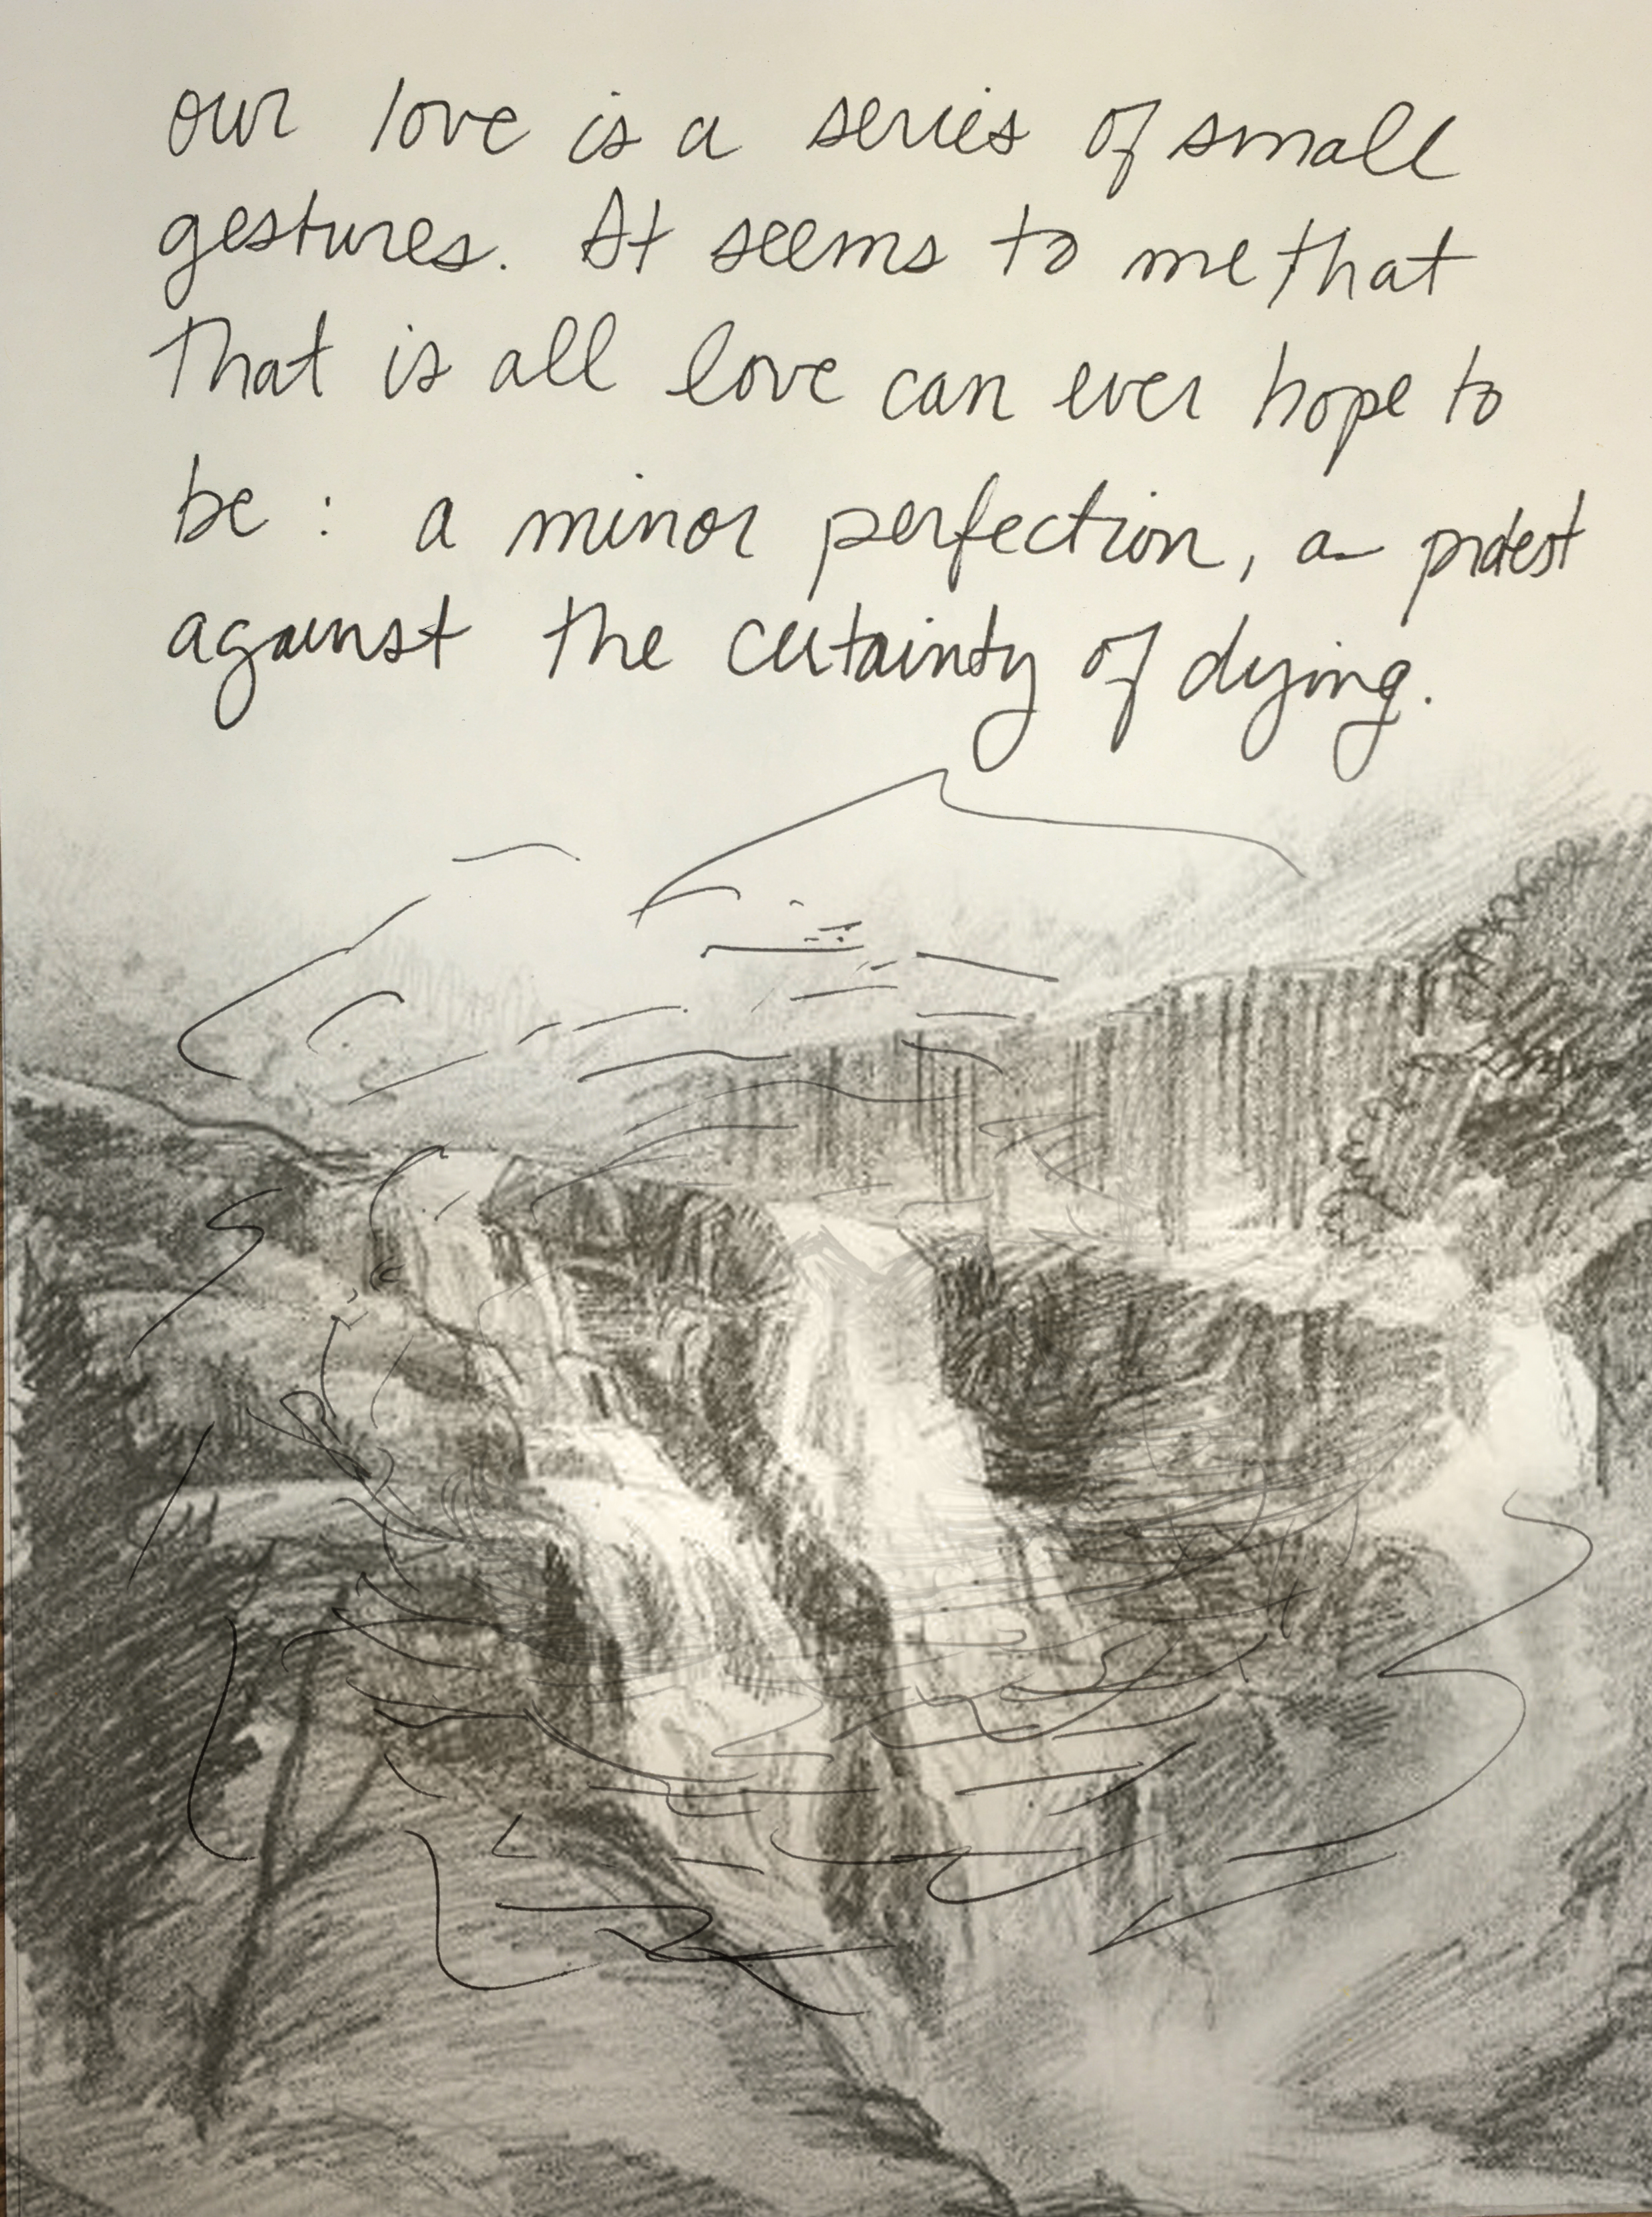 our love is a series of small
gestures. It seems to me that
that is all love can ever hope to
be: a minor perfection, a protest
against the certainty of dying.